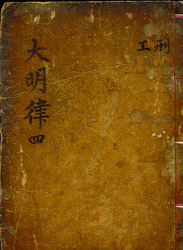 刑工
大明律四